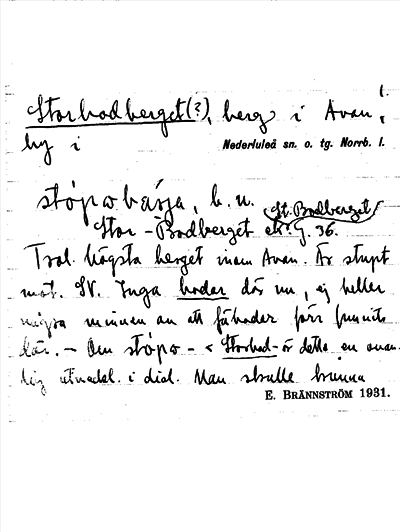 1.
Storbodberget(?), berg i Avan,
by i Nederluleå sn. o. tg. Norrb. l.
b. n.
St. Bodberget
Stor-Bodberget ek. G. 36.
Trol. högsta berget inom Avan. Är stupt
mot. SV. Inga bodar där nu, ej heller
några minnen an att fäbodar förr funnits
där. - Om stópo- < Storbod- är detta en ovan-
lig utveckl. i dial. Man skulle kunna
E. BRÄNNSTRÖM 1931.